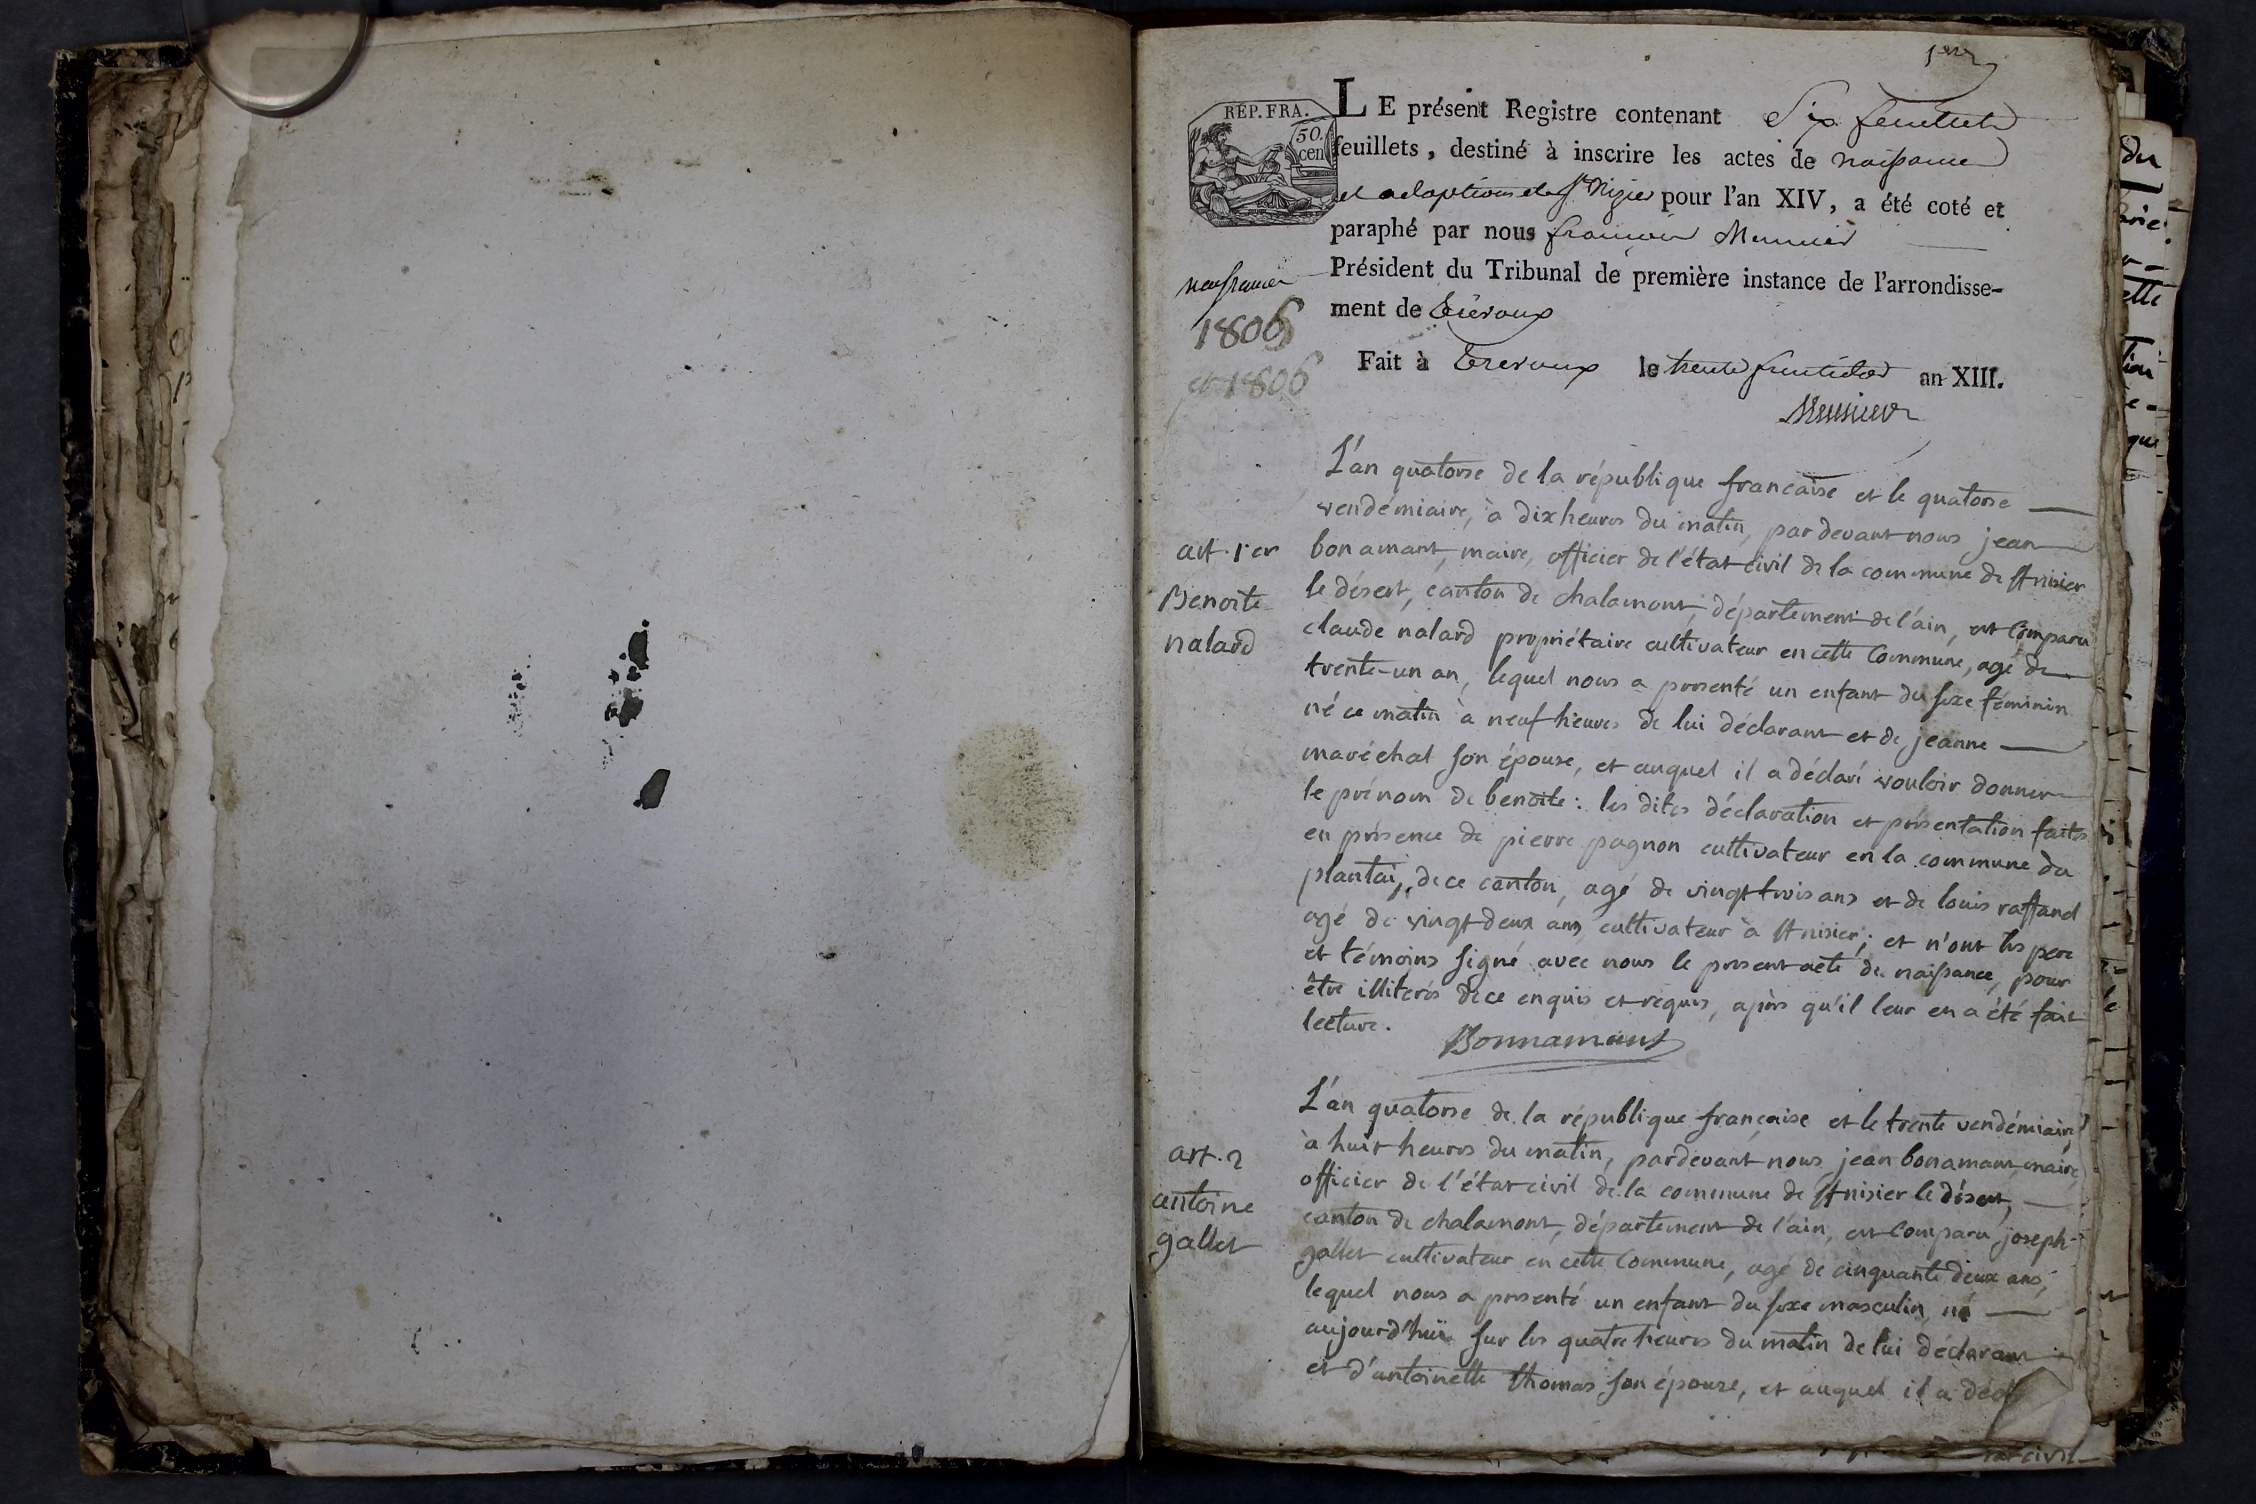 1er
REP. FRA.
50.
cen
LE présent Registre contenant Six feuillets
feuillets, destiné à inscrire les actes de naissance
et adoptions de St Nizier pour l'an XIV, a été coté et
paraphé par nous françois Munier
Président du Tribunal de première instance de l'arrondisse-
ment de Trévoux
Fait à Trevoux le trente fructidor an XIII.
naissances
1806
1806
L'an quatorse de la république francaise et le quatorse
vendémiaire, à dix heures du matin, par devant nous jean
bonamant, maire, officier de l'état civil de la commune de St nisier
le désert, canton de chalamont, département de l'ain, est comparu
claude nalard propriétaire cultivateur en cette Commune, agé de
trente-un an, lequel nous a presenté un enfant du sexe féminin
né ce matin à neuf heures de lui déclarant et de jeanne
maréchal son épouse, et auquel il a déclaré vouloir donner
le prénom de benoite : les dites déclaration et présentation faites
en présence de pierre pagnon cultivateur en la commune du
plantai, de ce canton, agé de vingt trois ans et de louis raffand
agé de vingt deux ans cultivateur à St nisier; et n'ont les pere
et témoins signé avec nous le present acte de naissance, pour
être illiterés de ce enquis et requis, après qu'il leur en a été fait
lecture.
Bonnamant
art. 1er
Benoite
nalard
L'an quatorse de la république française et le trente vendémiaire
à huit heures du matin, pardevant nous jean bonamant maire
officier de l'état civil de la commune de St nisier le désert,
canton de chalamont, département de l'ain, est comparu joseph
gallet cultivateur en cette Commune, agé de cinquante deux ans,
lequel nous a presenté un enfant du sexe masculin né
aujourd'hui sur les quatre heures du matin de lui déclarant
et d'antoinette thomas son épouse, et auquel il a décl
art. 2
antoine
gallet